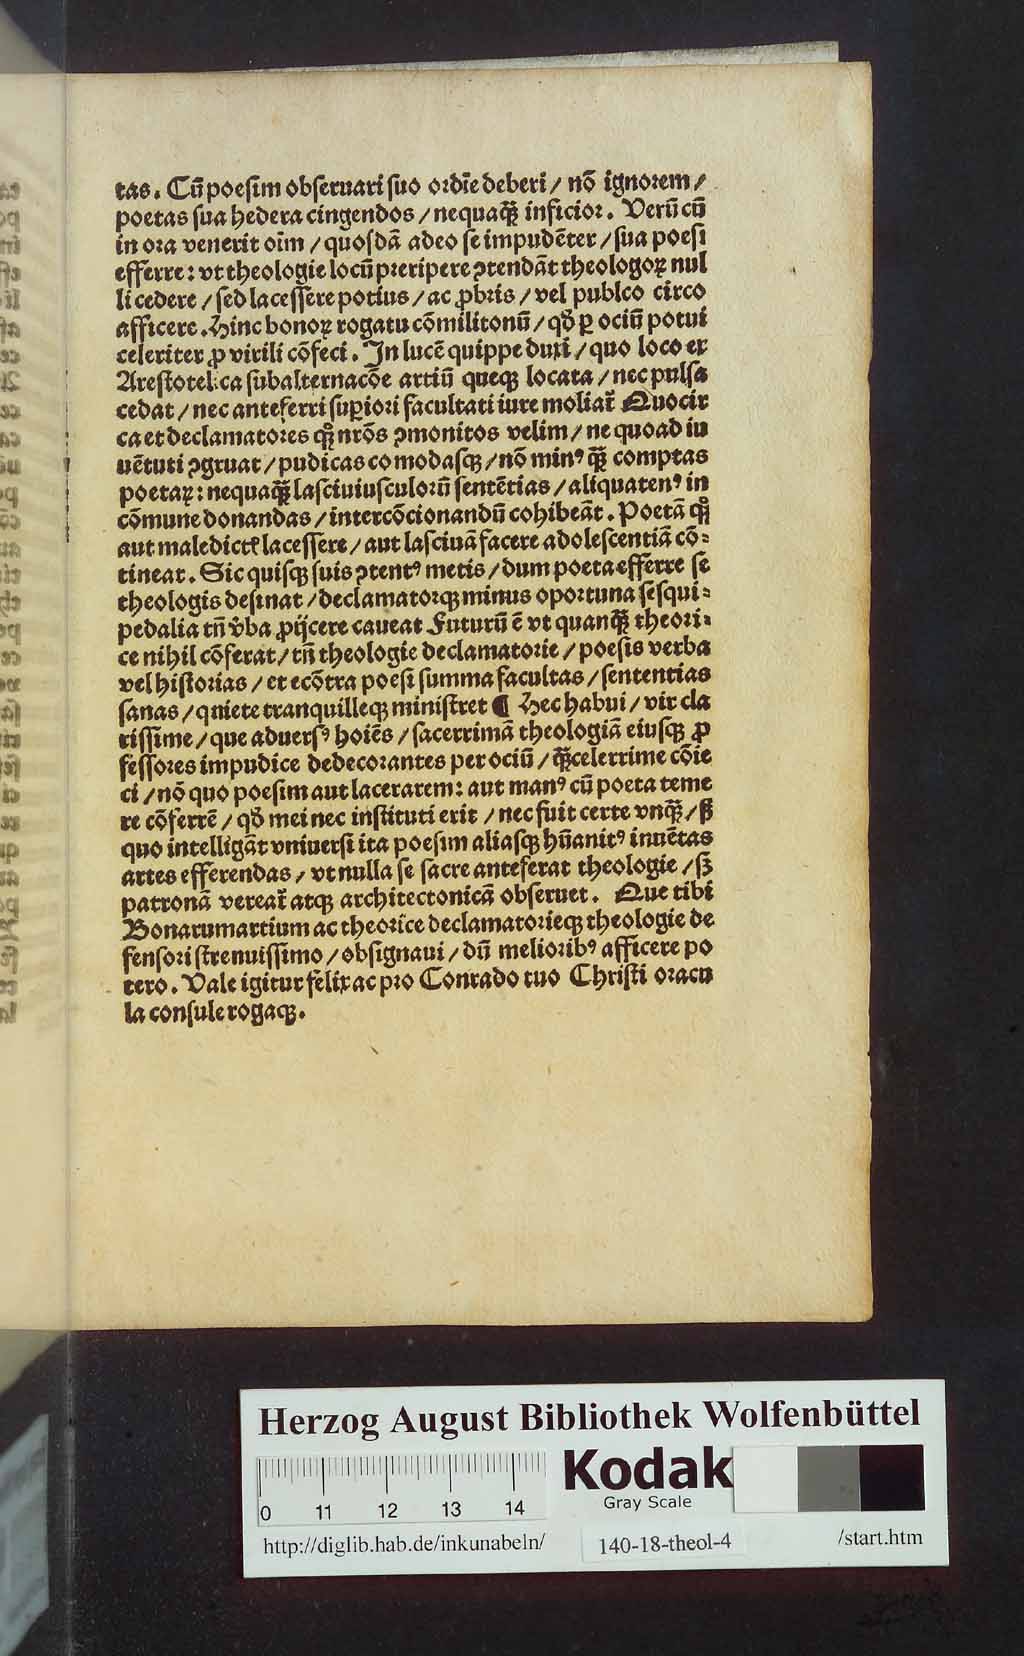 tas. Cū poesim obseruari suo ordīe deberi / nō ignorem /
poetas sua hedera cingendos / nequaq̄ȝ inficior. Verū cū
in ora venerit oīm / quosdā adeo se impudēter / sua poesi
efferre: vt theologie locū preripere ꝯtendāt theologoꝝ nul
li cedere / sed lacessere potius / ac ꝓbris / vel publco circo
afficere. Hinc bonoꝝ rogatu cōmilitonū / qd̄ ꝑ ociū potui
celeriter ꝓ virili cōfeci. In lucē quippe duxi / quo loco ex
Arestotelica subalternacōe artiū queqꝫ locata / nec pulsa
cedat / nec anteferri suꝑiori facultati iure moliat᷑ Quocir
ca et declamatores qꝫ nrōs ꝯmonitos velim / ne quoad iu
uētuti ꝯgruat / pudicas comodasqꝫ / nō minꝰ q̄ȝ comptas
poetaꝝ: nequaq̄ȝ lasciuiusculorū sentētias / aliquatenꝰ in
cōmune donandas / intercōcionandū cohibeāt. Poetā qꝫ
aut maledictꝭ lacessere / aut lasciuā facere adolescentiā cō-
tineat. Sic quisqꝫ suis ꝯtentꝰ metis / dum poeta efferre se
theologis desinat / declamatorqꝫ minus oportuna sesqui-
pedalia tn̄ v̄ba ꝓijcere caueat Futurū ē vt quanq̄ȝ theori-
ce nihil cōferat / tn̄ theologie declamatorie / poesis verba
vel historias / et ecōtra poesi summa facultas / sententias
sanas / quiete tranquilleqꝫ ministret ¶ Hec habui / vir cla
rissime / que aduersꝰ hoīes / sacerrimā theologiā eiusqꝫ ꝓ
fessores impudice dedecorantes per ociū / q̄ȝcelerrime cōie
ci / nō quo poesim aut lacerarem: aut manꝰ cū poeta teme
re cōferrē / qd̄ mei nec instituti erit / nec fuit certe vnq̄ȝ / sꝫ
quo intelligāt vniuersi ita poesim aliasqꝫ hūanitꝰ inuētas
artes efferendas / vt nulla se sacre anteferat theologie / sꝫ
patronā vereat᷑ atqꝫ architectonicā obseruet. Que tibi
Bonarumartium ac theorice declamatorieqꝫ theologie de
fensori strenuissimo / obsignaui / dū melioribꝰ afficere po
tero. Vale igitur felix ac pro Conrado tuo Christi oracu
la consule rogaqꝫ.
Herzog August Bibliothek Wolfenbüttel
0 11 12 13 14
Kodak
Gray Scale
http://diglib.hab.de/inkunabeln/ 140-18-theol-4 /start.htm